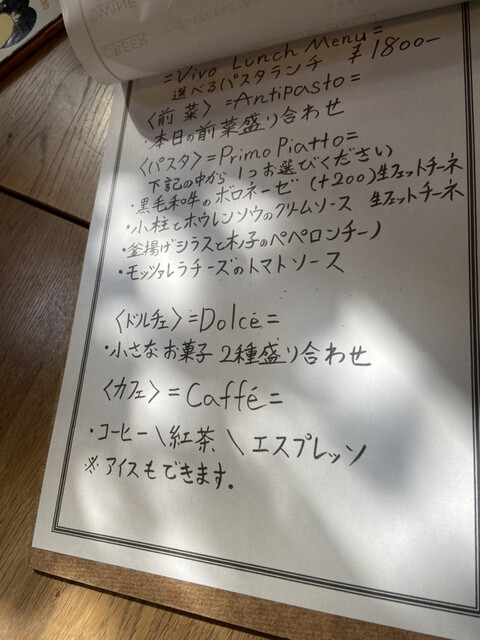 =Vivo Lunch Menu=
選べるパスタランチ ¥1800-
〈前菜〉=Antipasto=
・本日の前菜盛り合わせ
〈パスタ〉=Primo Piatto=
下記の中から 1つお選びください
・黒毛和牛のボロネーゼ (+200)生フェットチーネ
・小柱とホウレンソウのクリームソース 生フェットチーネ
・釜揚げシラスと木ノ子のペペロンチーノ
・モッツァレラチーズのトマトソース
〈ドルチェ〉=Dolce=
・小さなお菓子 2種盛り合わせ
〈カフェ〉=Caffé=
・コーヒー \ 紅茶 \ エスプレッソ
※アイスもできます。